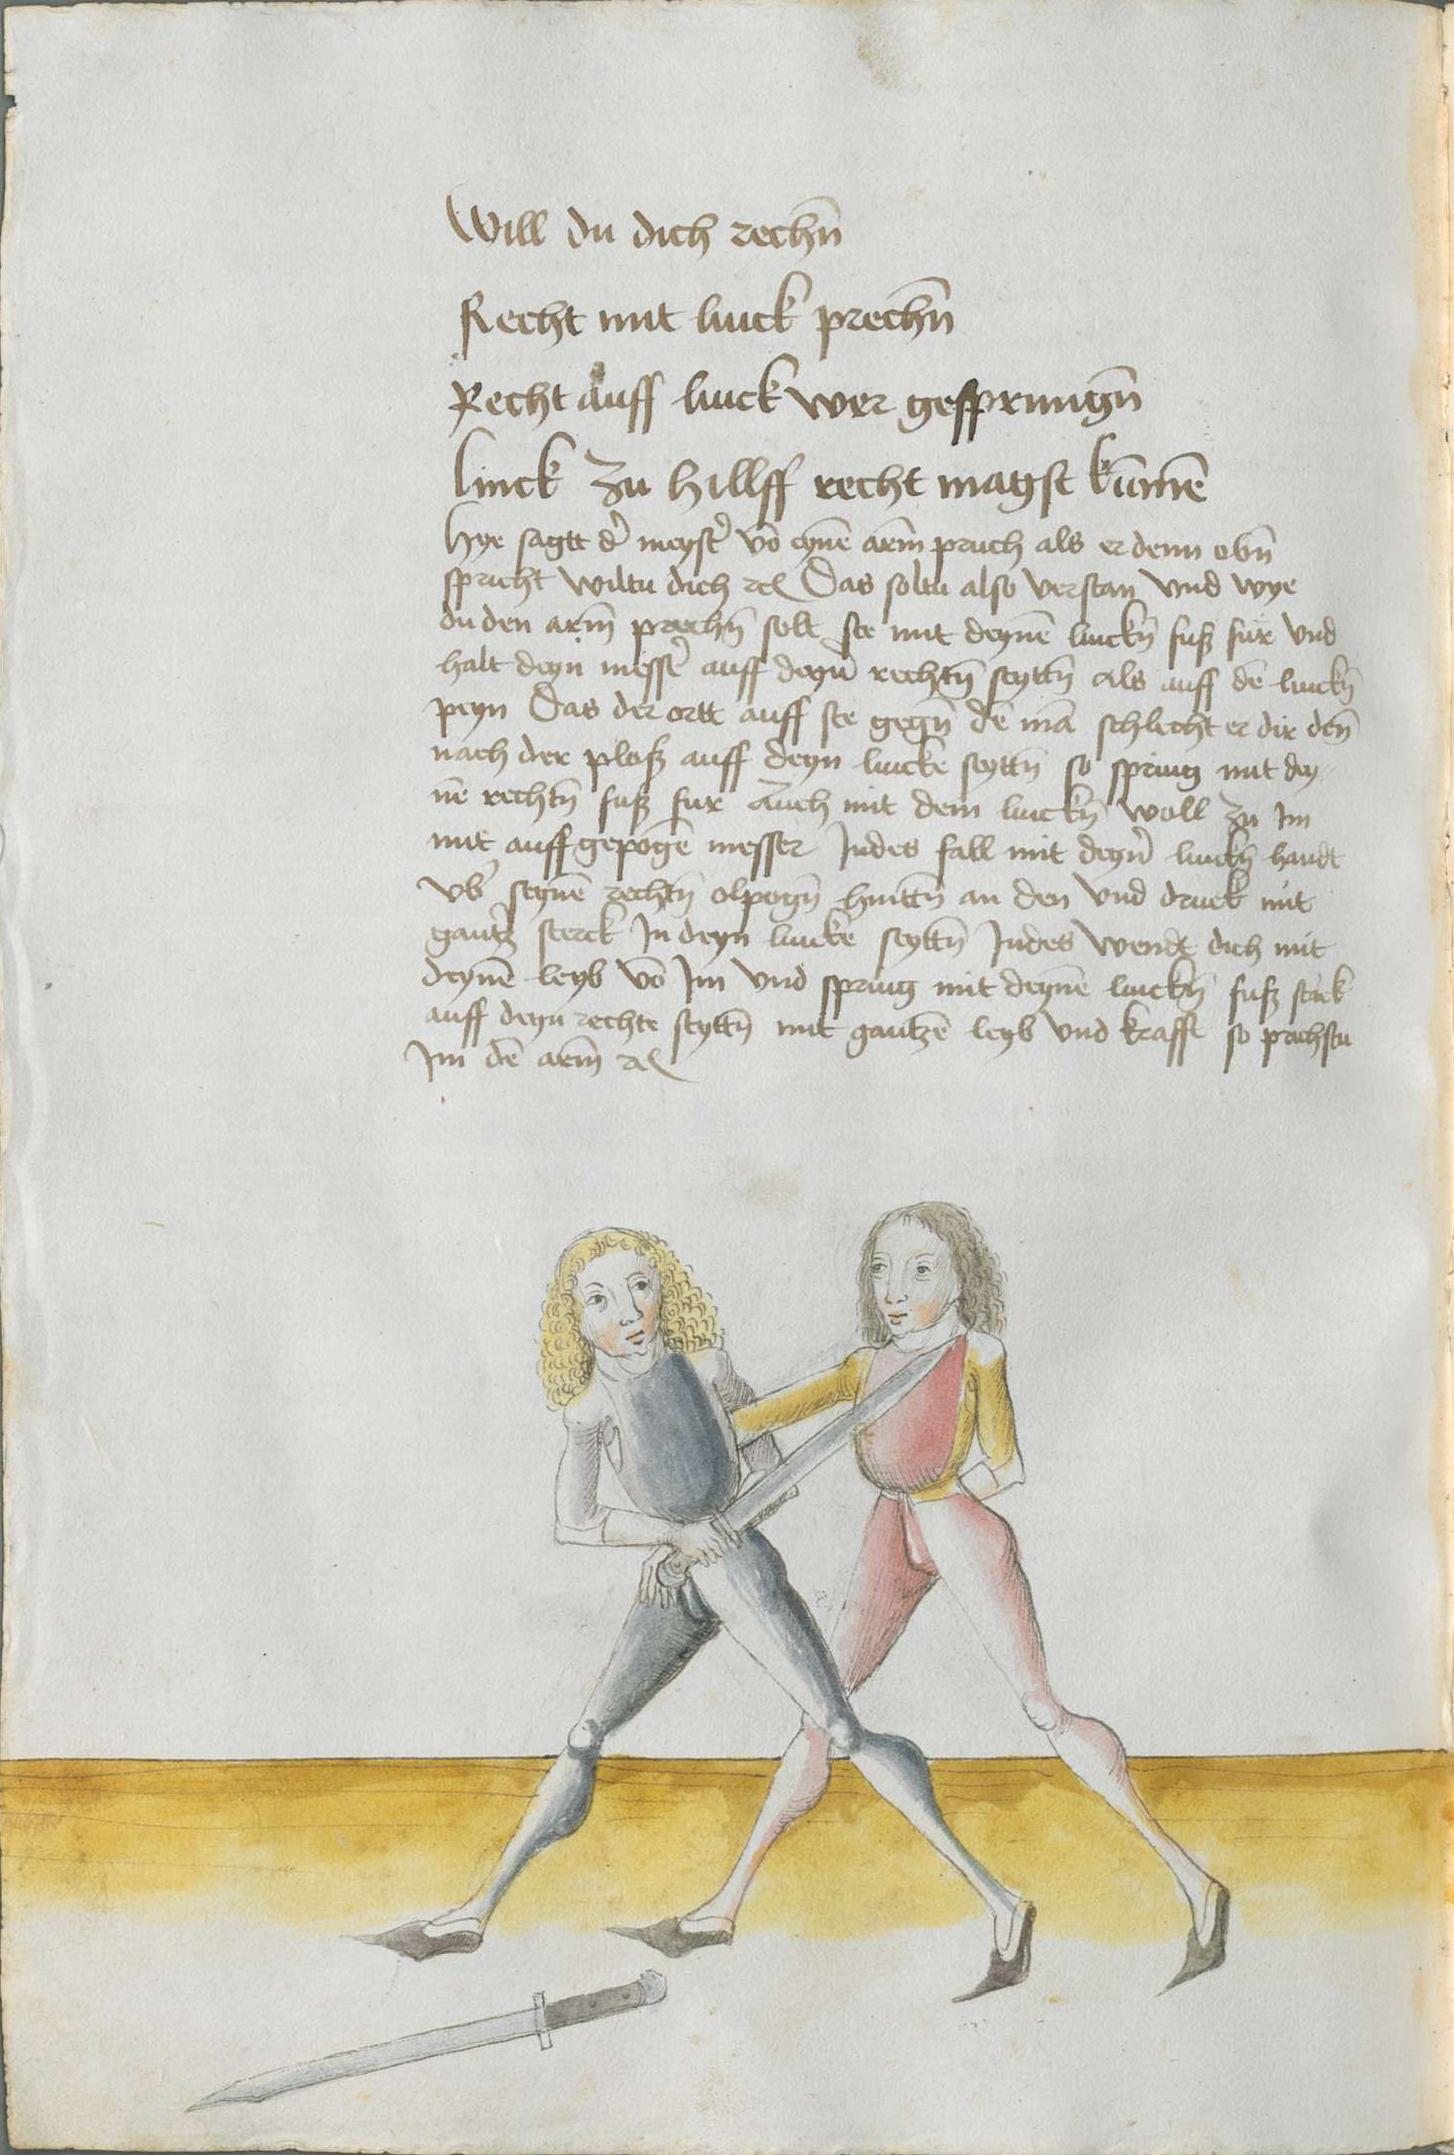 Will du dich rechn̄
Recht mit linck prechn̄
Recht auff linck wer gesprungn̄
Linck zu hillff recht magst kūmē
Hye sagtt d'̄ meyst'̄ vō eynē arm̄ pruch als er denn obn̄
spricht wiltu dich ꝛcꝭ Das soltu also verstan vnd wye
du den arm̄ prechn̄ solt ste mit deynē linckn̄ fuß für vnd
halt deyn messer auff deyn̄ rechtn̄ seyttn̄ als auff dē linckn̄
peyn Das der ortt auff ste gegn̄ dē mā schlecht er dir den̄
nach der ploß auff deyn lincke seyttn̄ so spring mit dey=
nē rechtn̄ fuß fur Auch mit dem linckn̄ woll zu im
mit auffgepogē messer Indes fall mit deyn̄ linckn̄ handt
vb'̄ seynē rechtn̄ elpogn̄ hinttn̄ an den vnd druck mit
gantz sterck In deyn lincke seyttn̄ Indes wendt dich mit
deynē leyb vō Im vnd spring mit deynē linckn̄ fuß starck
auff deyn rechte seyttn̄ mit gantzē leyb vnd krafft so prichstu
Im dē arm̄ ꝛcꝭ